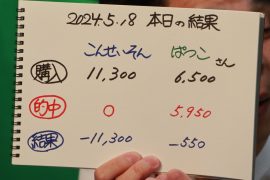 2024.5.18 本日の結果
こんせいそん ぱつこさん
購入 11,300 6,500
的中 0 5,950
結果 -11,300 -550